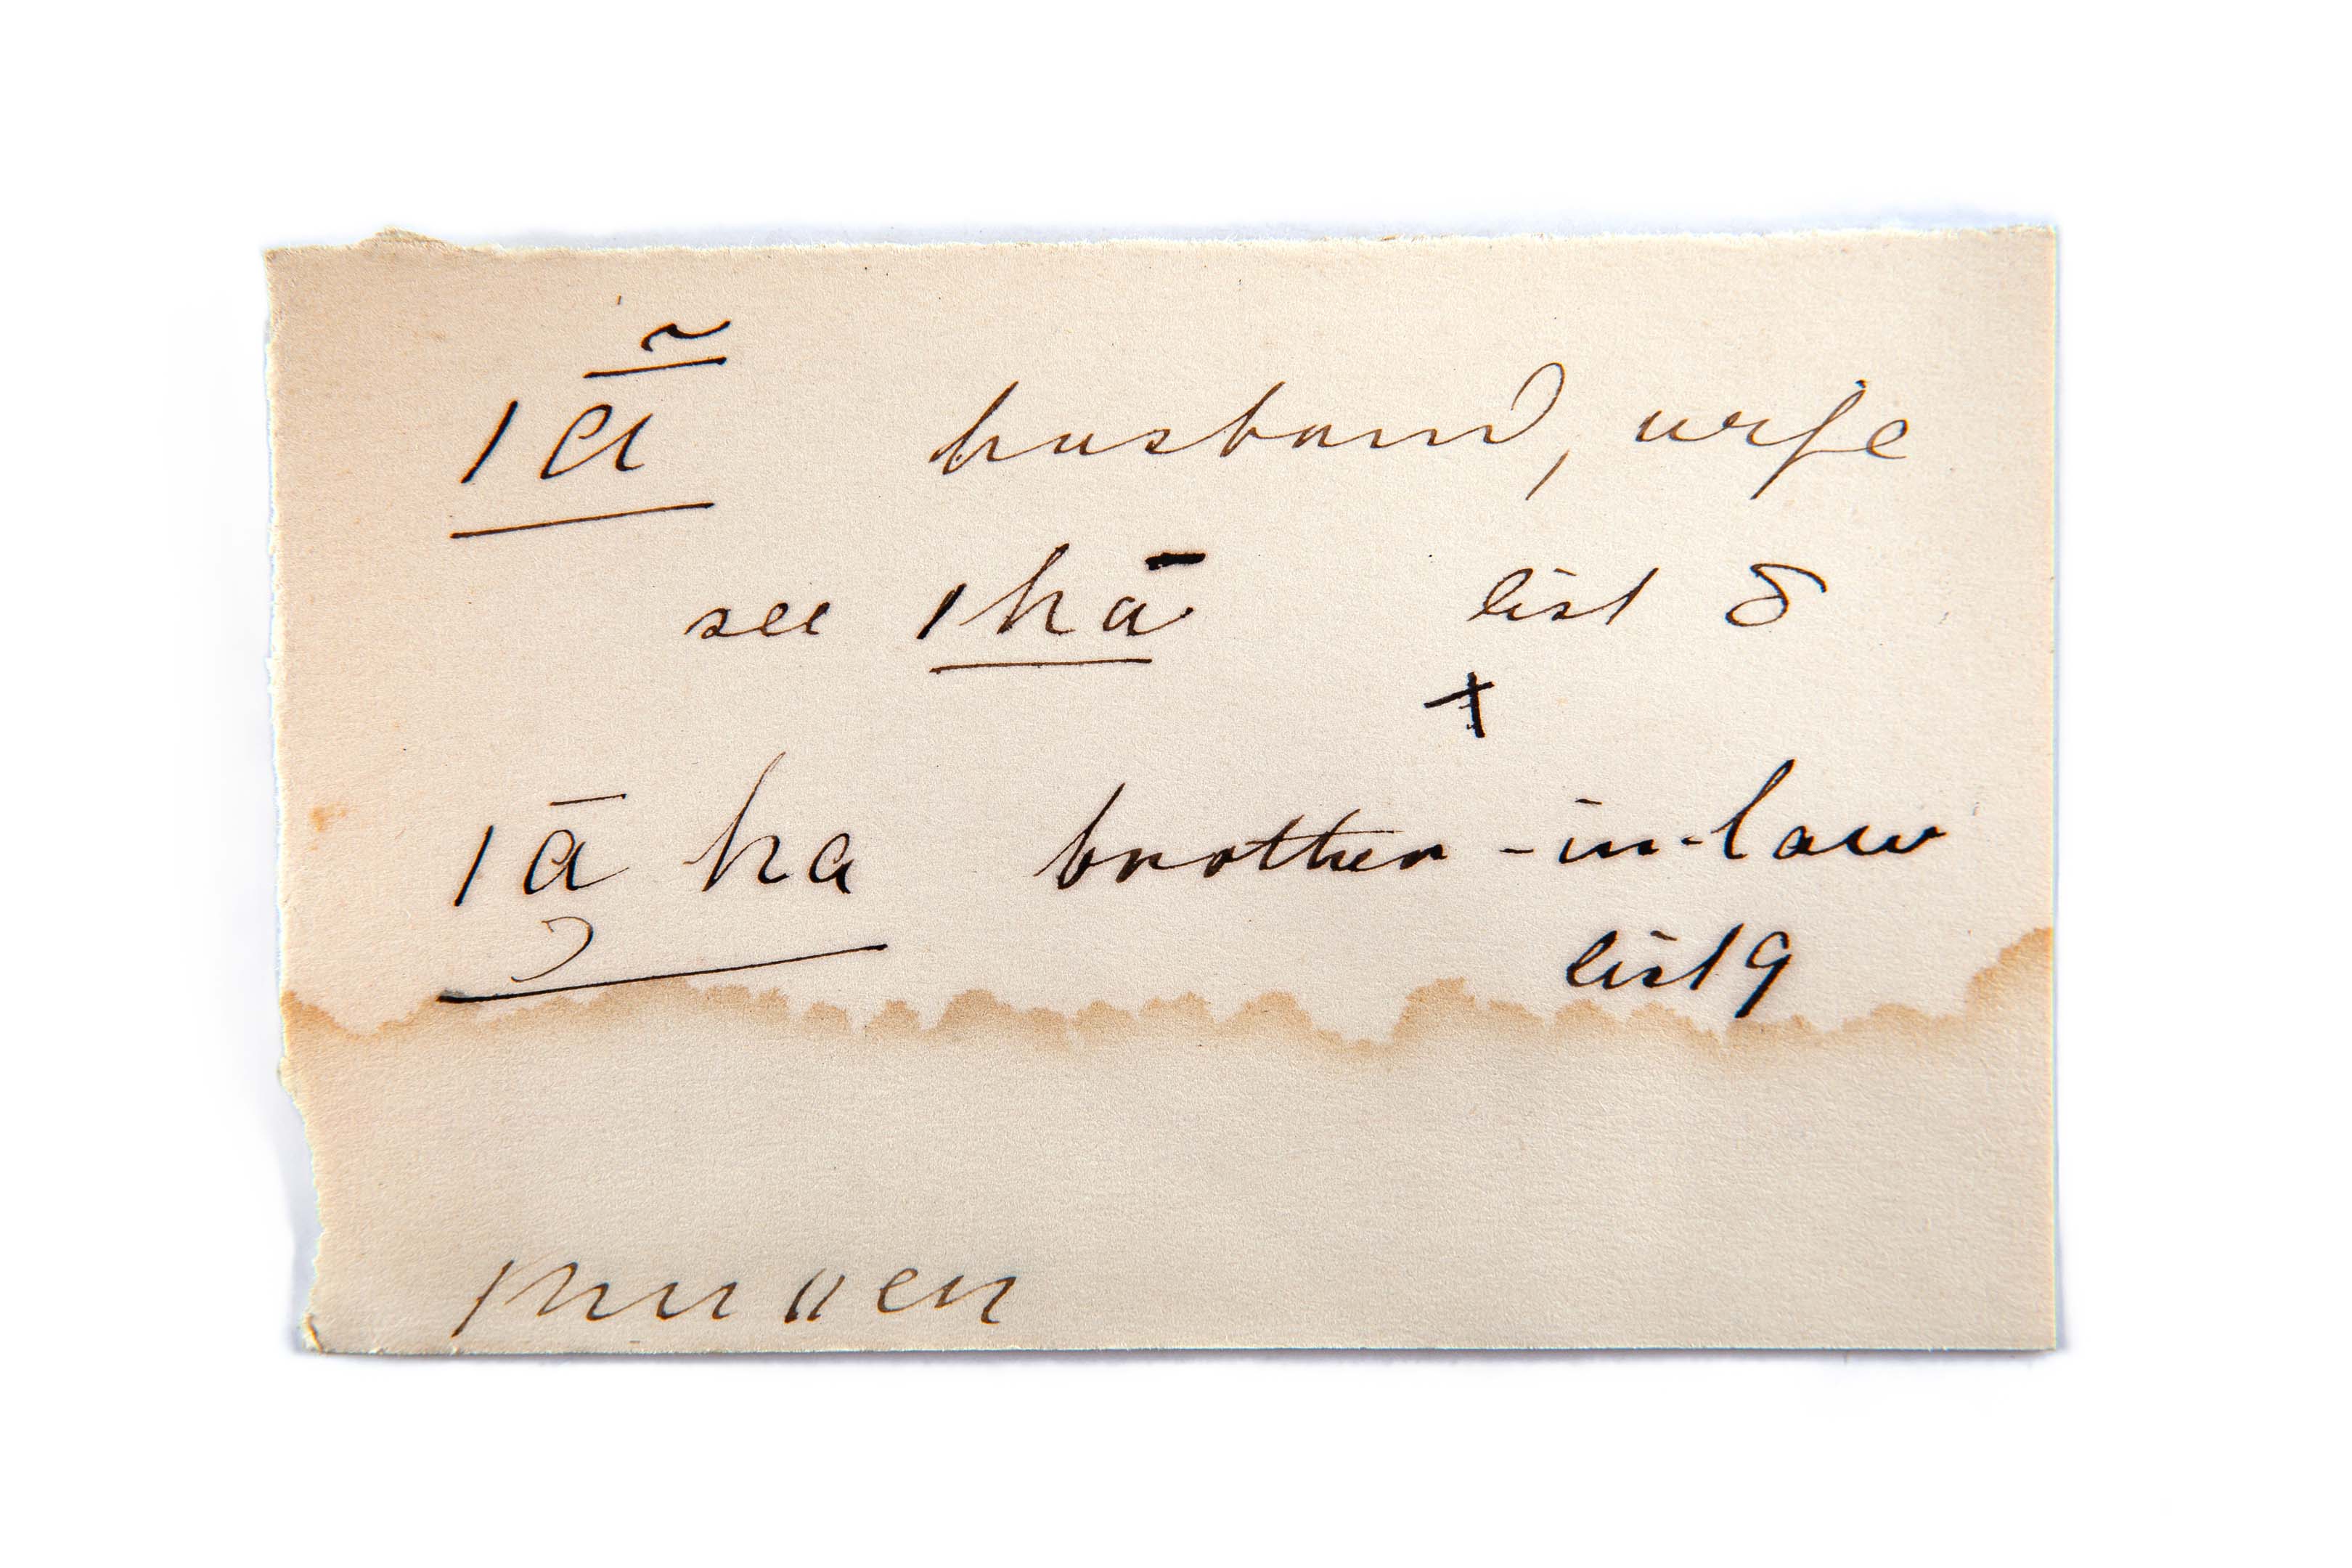 ıā̃ husband, wife
see ıhā list 8
+
ıā ha brother-in-law
list 9
Mullen